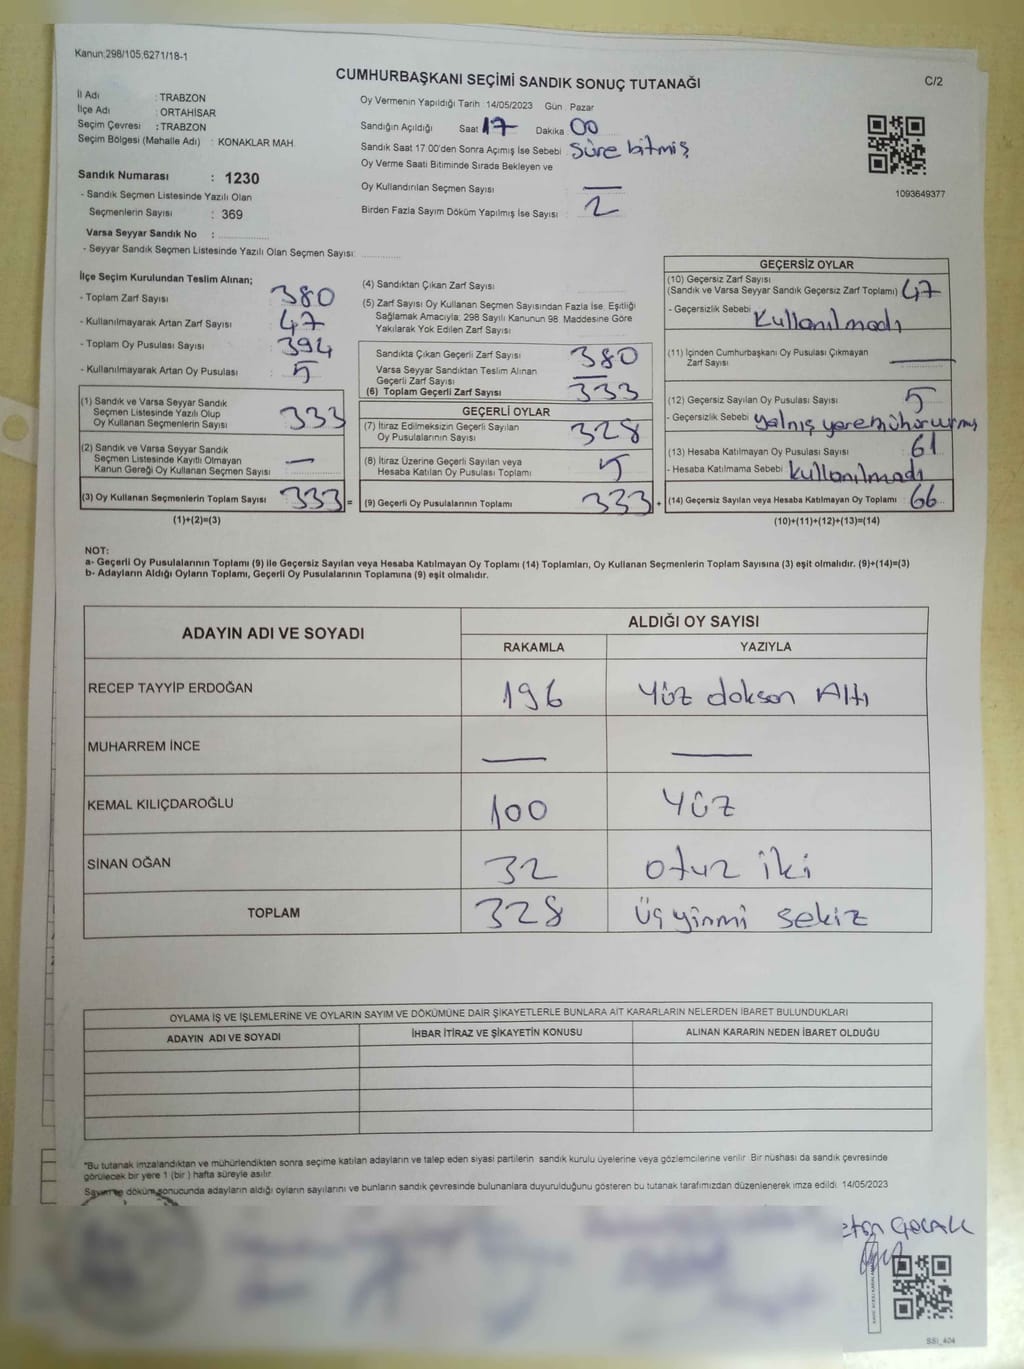 Kanun:298/105,6271/18-1
CUMHURBAŞKANI SEÇİMİ SANDIK SONUÇ TUTANAĞI
C/2
İl Adı : TRABZON
İlçe Adı : ORTAHİSAR
Seçim Çevresi : TRABZON
Seçim Bölgesi (Mahalle Adı) : KONAKLAR MAH.
Sandık Numarası : 1230
- Sandık Seçmen Listesinde Yazılı Olan
Seçmenlerin Sayısı : 369
Varsa Seyyar Sandık No :
- Seyyar Sandık Seçmen Listesinde Yazılı Olan Seçmen Sayısı:
Oy Vermenin Yapıldığı Tarih : 14/05/2023 Gün : Pazar
Sandığın Açıldığı Saat 17 Dakika 00
Sandık Saat 17:00'den Sonra Açımış İse Sebebi Süre bitmiş
Oy Verme Saati Bitiminde Sırada Bekleyen ve
Oy Kullandırılan Seçmen Sayısı —
Birden Fazla Sayım Döküm Yapılmış İse Sayısı : 2
1093649377
İlçe Seçim Kurulundan Teslim Alınan;
- Toplam Zarf Sayısı : 380
- Kullanılmayarak Artan Zarf Sayısı : 47
- Toplam Oy Pusulası Sayısı : 394
- Kullanılmayarak Artan Oy Pusulası : 5
(1) Sandık ve Varsa Seyyar Sandık
Seçmen Listesinde Yazılı Olup
Oy Kullanan Seçmenlerin Sayısı : 333
(2) Sandık ve Varsa Seyyar Sandık
Seçmen Listesinde Kayıtlı Olmayan
Kanun Gereği Oy Kullanan Seçmen Sayısı : —
(3) Oy Kullanan Seçmenlerin Toplam Sayısı : 333 =
(1)+(2)=(3)
(4) Sandıktan Çıkan Zarf Sayısı :
(5) Zarf Sayısı Oy Kullanan Seçmen Sayısından Fazla İse, Eşitliği
Sağlamak Amacıyla; 298 Sayılı Kanunun 98. Maddesine Göre
Yakılarak Yok Edilen Zarf Sayısı :
Sandıkta Çıkan Geçerli Zarf Sayısı : 380
Varsa Seyyar Sandıktan Teslim Alınan
Geçerli Zarf Sayısı : —
(6) Toplam Geçerli Zarf Sayısı : 333
GEÇERLİ OYLAR
(7) İtiraz Edilmeksizin Geçerli Sayılan
Oy Pusulalarının Sayısı : 328
(8) İtiraz Üzerine Geçerli Sayılan veya
Hesaba Katılan Oy Pusulası Toplamı : 5
(9) Geçerli Oy Pusulalarının Toplamı : 333 +
GEÇERSİZ OYLAR
(10) Geçersiz Zarf Sayısı
(Sandık ve Varsa Seyyar Sandık Geçersiz Zarf Toplamı) : 47
- Geçersizlik Sebebi : Kullanılmadı
(11) İçinden Cumhurbaşkanı Oy Pusulası Çıkmayan
Zarf Sayısı : —
(12) Geçersiz Sayılan Oy Pusulası Sayısı : 5
- Geçersizlik Sebebi : yalnış yere mühürurmuş
(13) Hesaba Katılmayan Oy Pusulası Sayısı : 61
- Hesaba Katılmama Sebebi : kullanılmadı
(14) Geçersiz Sayılan veya Hesaba Katılmayan Oy Toplamı : 66
(10)+(11)+(12)+(13)=(14)
NOT:
a- Geçerli Oy Pusulalarının Toplamı (9) ile Geçersiz Sayılan veya Hesaba Katılmayan Oy Toplamı (14) Toplamları, Oy Kullanan Seçmenlerin Toplam Sayısına (3) eşit olmalıdır. (9)+(14)=(3)
b- Adayların Aldığı Oyların Toplamı, Geçerli Oy Pusulalarının Toplamına (9) eşit olmalıdır.
ADAYIN ADI VE SOYADI ALDIĞI OY SAYISI
RAKAMLA YAZIYLA
RECEP TAYYİP ERDOĞAN 196 Yüz doksan Altı
MUHARREM İNCE — —
KEMAL KILIÇDAROĞLU 100 Yüz
SİNAN OĞAN 32 otuz iki
TOPLAM 328 Üç yirmi sekiz
OYLAMA İŞ VE İŞLEMLERİNE VE OYLARIN SAYIM VE DÖKÜMÜNE DAİR ŞİKAYETLERLE BUNLARA AİT KARARLARIN NELERDEN İBARET BULUNDUKLARI
ADAYIN ADI VE SOYADI İHBAR İTİRAZ VE ŞİKAYETİN KONUSU ALINAN KARARIN NEDEN İBARET OLDUĞU
*Bu tutanak imzalandıktan ve mühürlendikten sonra seçime katılan adayların ve talep eden siyasi partilerin sandık kurulu üyelerine veya gözlemcilerine verilir. Bir nüshası da sandık çevresinde
görülecek bir yere 1 (bir) hafta süreyle asılır.
Sayım ve döküm sonucunda adayların aldığı oyların sayılarını ve bunların sandık çevresinde bulunanlara duyurulduğunu gösteren bu tutanak tarafımızdan düzenlenerek imza edildi. 14/05/2023
SSİ_404